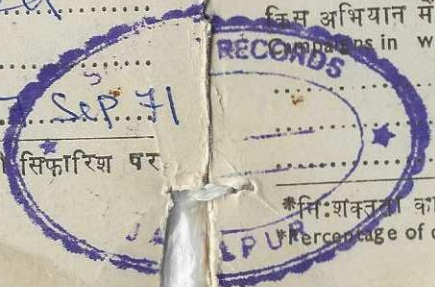 किस अभियान में
RECORDS
Campaigns in w
Sep 71
सिफारिश पर
*नि:शक्तता का
*Percentage of d